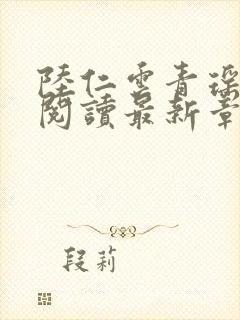 陸仁雲青瑶
閱讀最新章
段莉